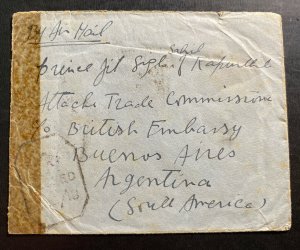 By Air Mail
Prince Jit Singh of Kapurthala
Sahib
Attache Trade Commissioner
c/o British Embassy
Buenos Aires
Argentina
(South America)